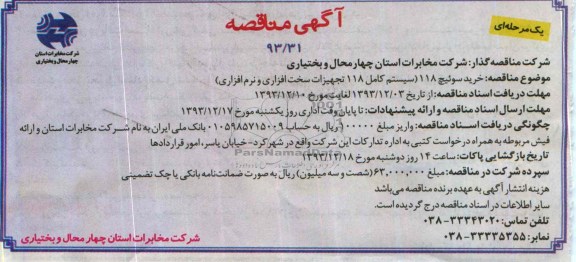 آگهی مناقصه
یک مرحله‌ای
۹۳/۳۱
شرکت مخابرات استان
چهارمحال و بختیاری
شرکت مناقصه گذار: شرکت مخابرات استان چهارمحال و بختیاری
موضوع مناقصه: خرید سوئیچ ۱۱۸ (سیستم کامل ۱۱۸ تجهیزات سخت افزاری و نرم افزاری)
مهلت دریافت اسناد مناقصه: از تاریخ ۱۳۹۳/۱۲/۰۳ لغایت مورخ ۱۳۹۳/۱۲/۱۰
مهلت ارسال اسناد مناقصه و ارائه پیشنهادات: تا پایان وقت اداری روز یکشنبه مورخ ۱۳۹۳/۱۲/۱۷
چگونگی دریافت اسناد مناقصه: واریز مبلغ ۱۰۰۰۰۰ ریال به حساب ۰۱۰۵۹۸۵۷۱۵۰۰۹ بانک ملی ایران به نام شرکت مخابرات استان و ارائه
فیش مربوطه به همراه درخواست کتبی به اداره تدارکات این شرکت واقع در شهرکرد- خیابان یاسر، امور قراردادها
تاریخ بازگشایی پاکات: ساعت ۱۴ روز دوشنبه مورخ ۱۳۹۳/۱۲/۱۸
سپرده شرکت در مناقصه: مبلغ ۶۳,۰۰۰,۰۰۰ (شصت و سه میلیون) ریال به صورت ضمانت‌نامه بانکی یا چک تضمینی
هزینه انتشار آگهی به عهده برنده مناقصه می‌باشد
سایر اطلاعات در اسناد مناقصه درج گردیده است.
تلفن تماس: ۳۳۳۴۳۰۲۰-۰۳۸
نمابر: ۳۳۳۳۵۳۵۵-۰۳۸
شرکت مخابرات استان چهارمحال و بختیاری